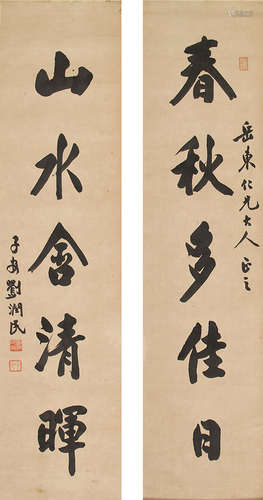 春秋多佳日
岳東仁兄大人正之
山水含清暉
子安劉潤民